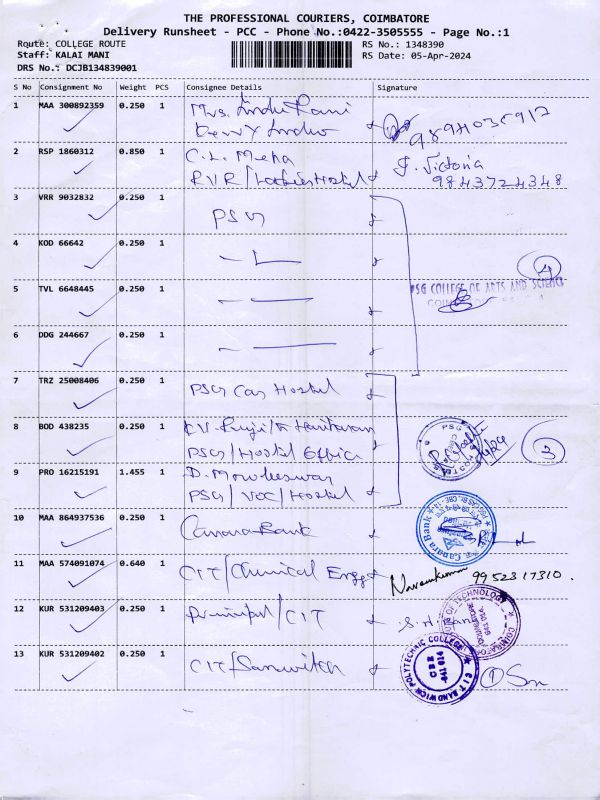 THE PROFESSIONAL COURIERS, COIMBATORE
Delivery Runsheet - PCC - Phone No.:0422-3505555 - Page No.:1
Route: COLLEGE ROUTE
RS No.: 1348390
Staff: KALAI MANI
RS Date: 05-Apr-2024
DRS No.: DCJB134839001
S No Consignment No Weight PCS Consignee Details Signature
1 MAA 300892359 0.250 1 Mrs. Indu Rani
2 RSP 1860312 0.850 1 C.L. J. Victoria
RVR / Hostel 9843724348
3 VRR 9032832 0.250 1 PSG
4 KOD 66642 0.250 1 4
5 TVL 6648445 0.250 1 PSG COLLEGE OF ARTS AND SCIENCE
6 DDG 244667 0.250 1
7 TRZ 25008406 0.250 1 PSG Cas Hostel
8 BOD 438235 0.250 1 3
PSG / Hostel Office
9 PRO 16215191 1.455 1
PSG / VOC / Hostel
10 MAA 864937536 0.250 1 Canara Bank
Canara Bank
11 MAA 574091074 0.640 1 CIT/Chemical Engg 9952317310.
12 KUR 531209403 0.250 1 Principal / CIT
OF TECHNOLOGY
COIMBATORE
641 014
13 KUR 531209402 0.250 1 CIT/Sanwitch 1
CIT SANDWICH POLYTECHNIC COLLEGE
CBE
641 014